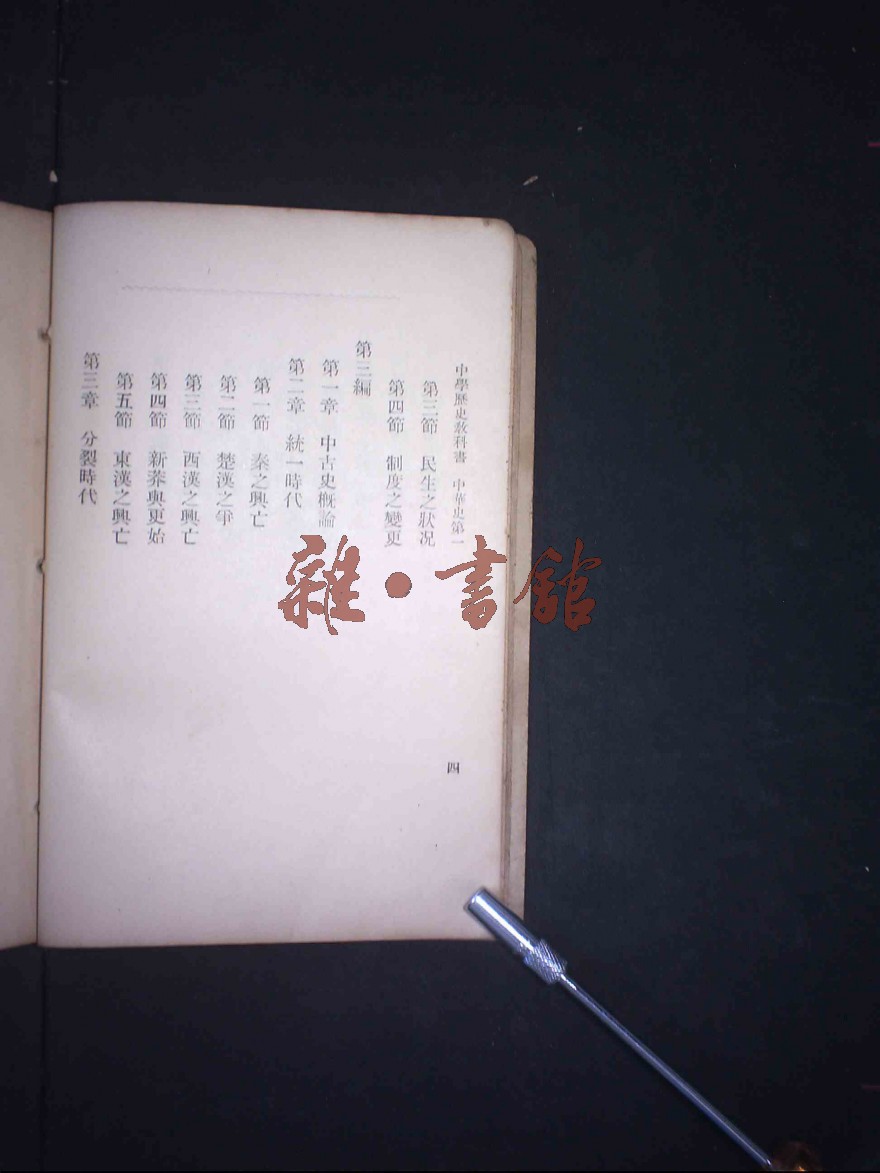 中學歷史教科書　中華史第一
第三節　民生之狀況
第四節　制度之變更
第三編
第一章　中古史概論
第二章　統一時代
第一節　秦之興亡
第二節　楚漢之爭
第三節　西漢之興亡
第四節　新莽與更始
第五節　東漢之興亡
第三章　分裂時代
四
雜·書館